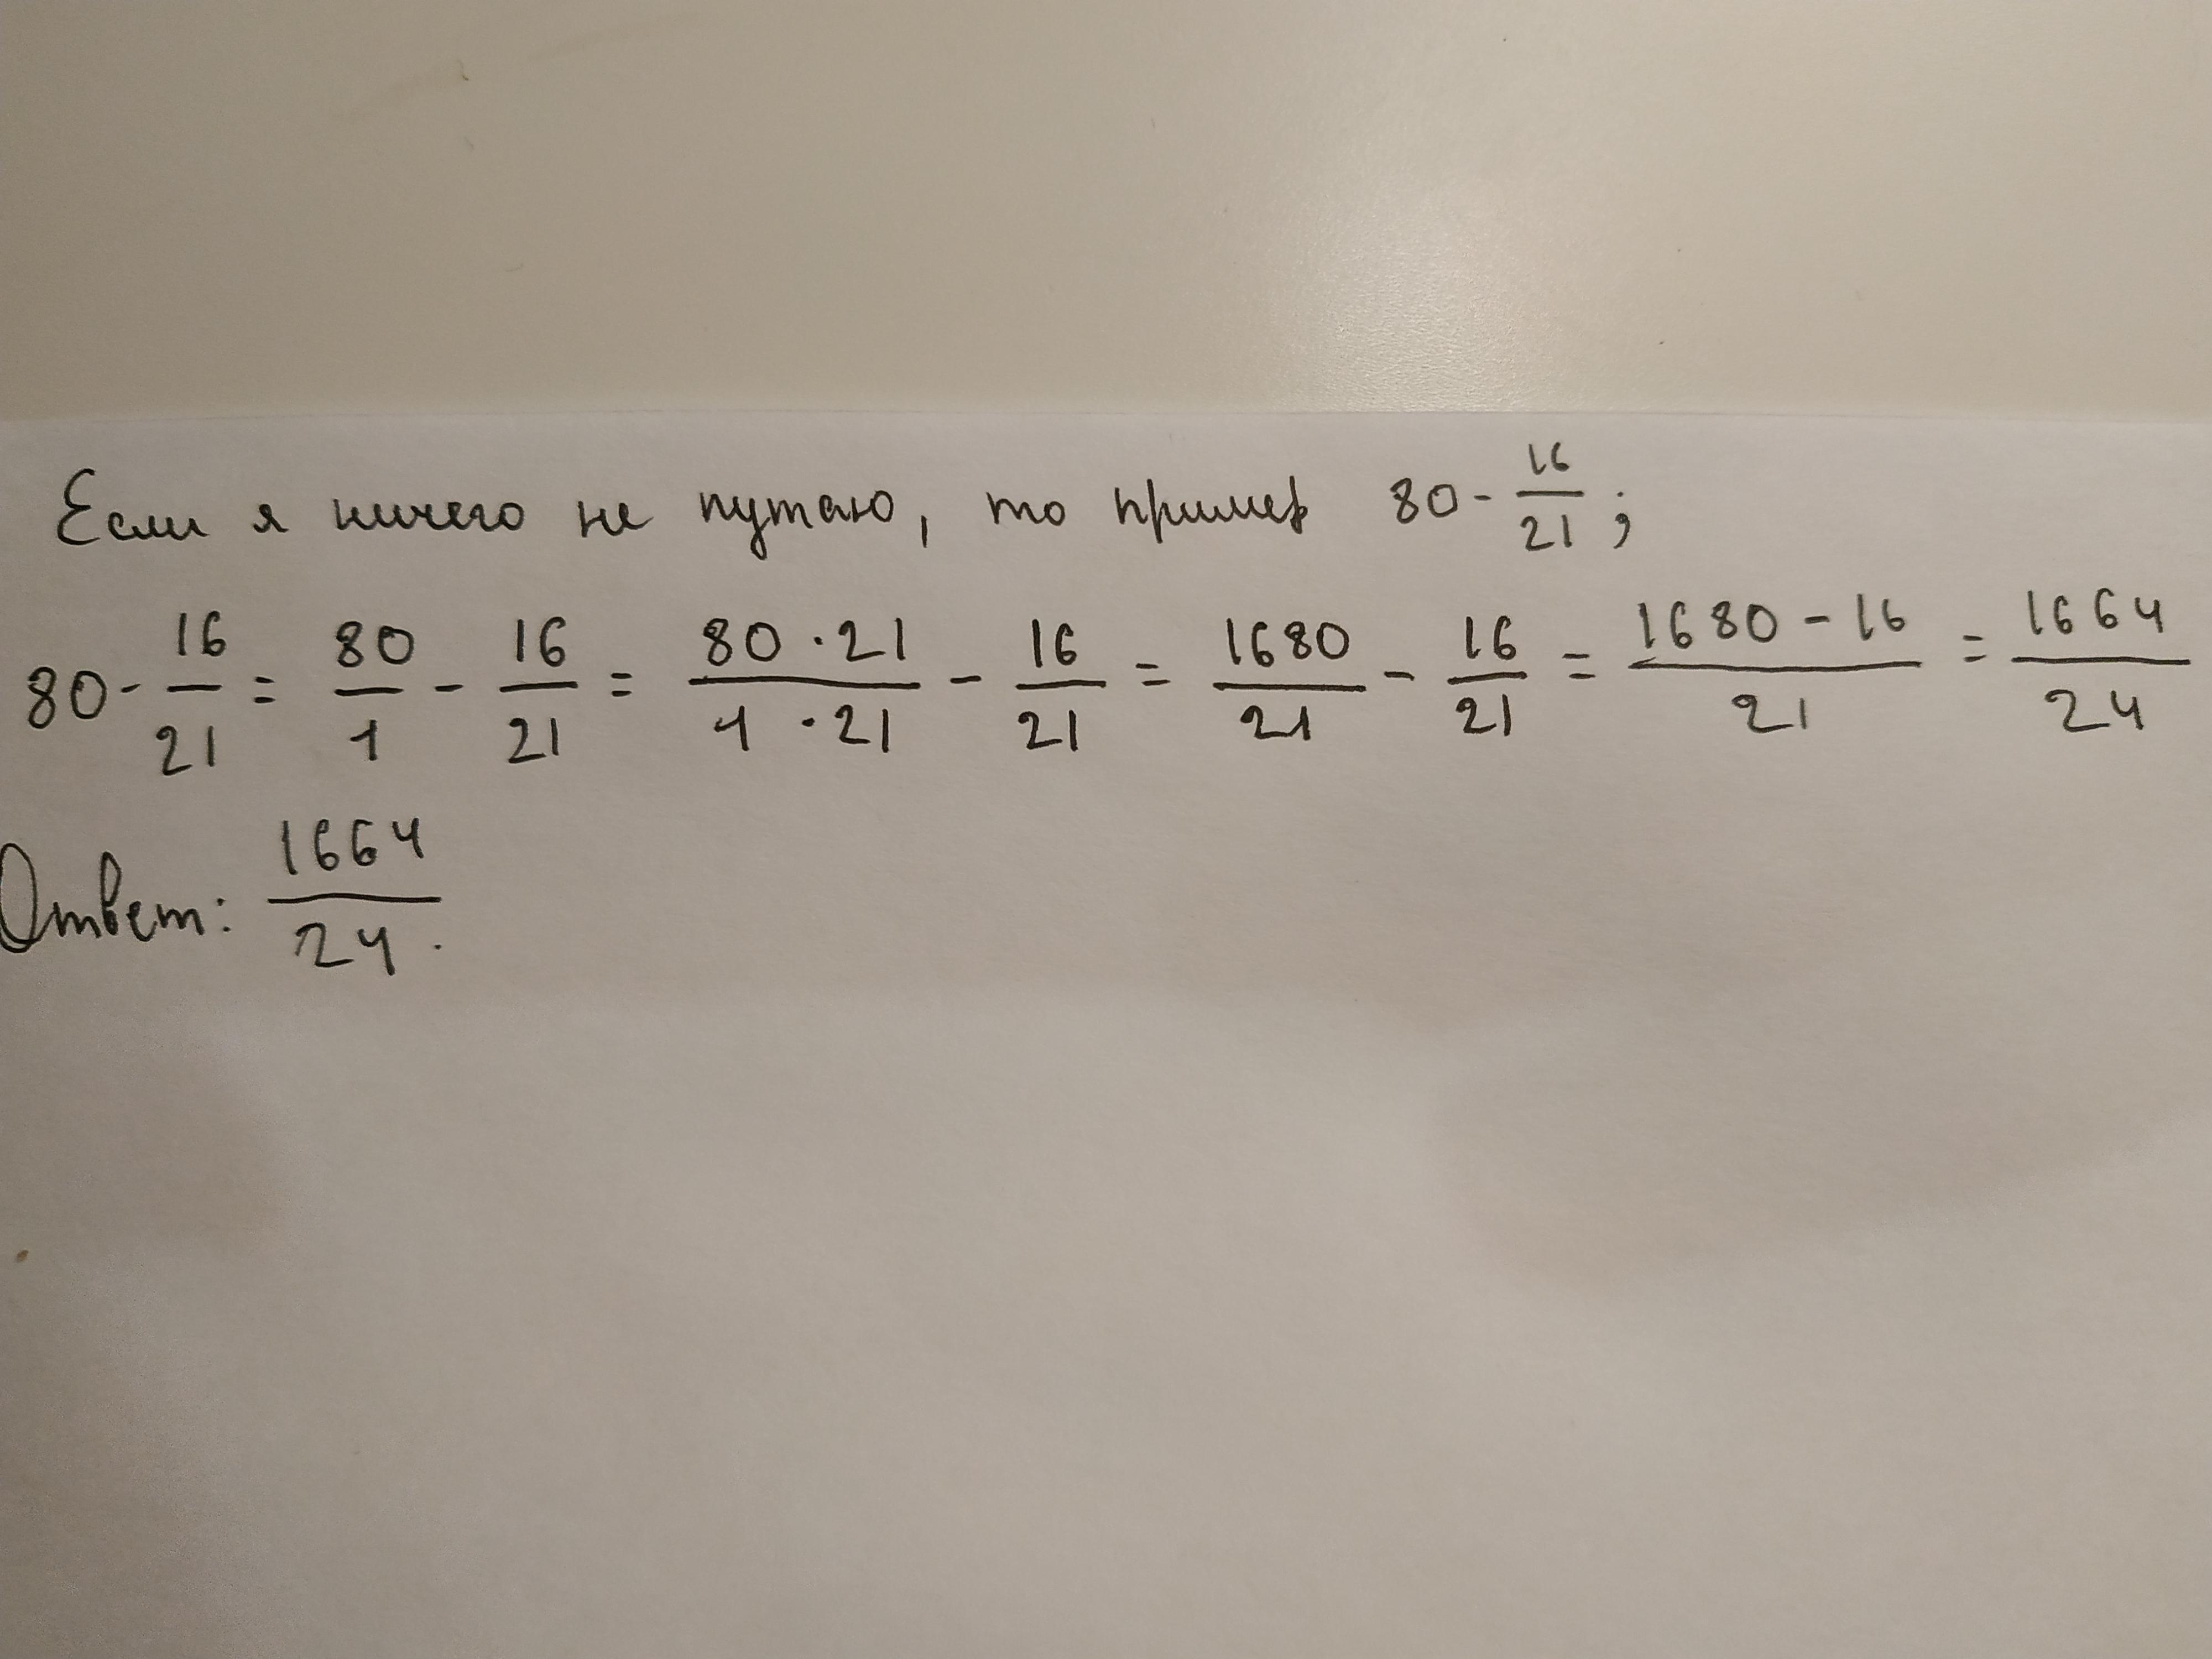 Если я ничего не путаю, то пример 80 - 16/21;
80 - 16/21 = 80/1 - 16/21 = 80·21/1·21 - 16/21 = 1680/21 - 16/21 = 1680-16/21 = 1664/24
Ответ: 1664/24.